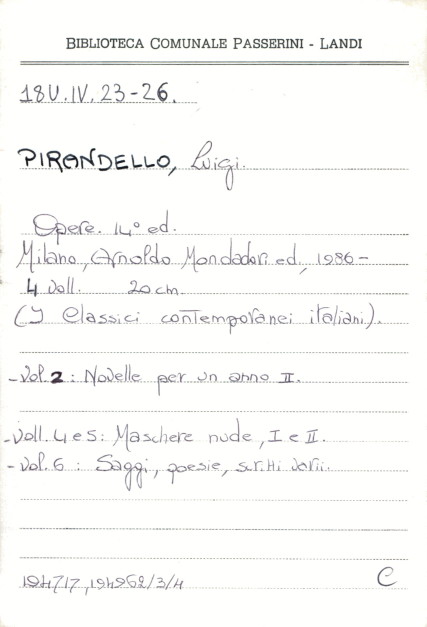 BIBLIOTECA COMUNALE PASSERINI - LANDI
18U.IV.23-26.
PIRANDELLO, Luigi.
Opere. 14° ed.
Milano, Arnoldo Mondadori ed., 1986-
4 voll. 20 cm.
(I Classici contemporanei italiani).
-Vol. 2: Novelle per un anno II.
-Voll. 4 e 5: Maschere nude, I e II.
-Vol. 6: Saggi, poesie, scritti varii.
194717, 194962/3/4 C